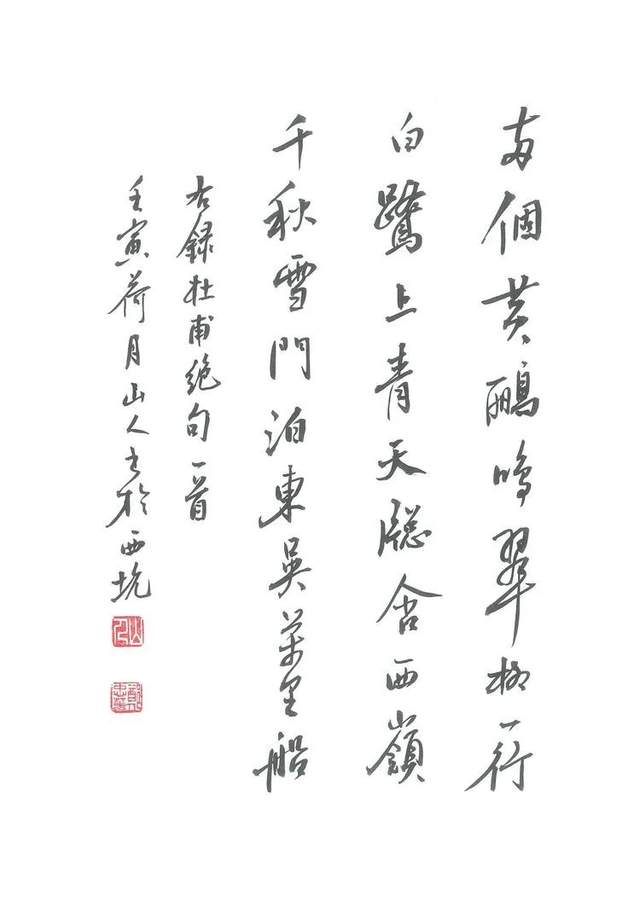 两個黃鸝鳴翠柳一行
白鷺上青天牕含西嶺
千秋雪門泊東吳萬里船
右錄杜甫絕句一首
壬寅荷月山人書於西坑
山人